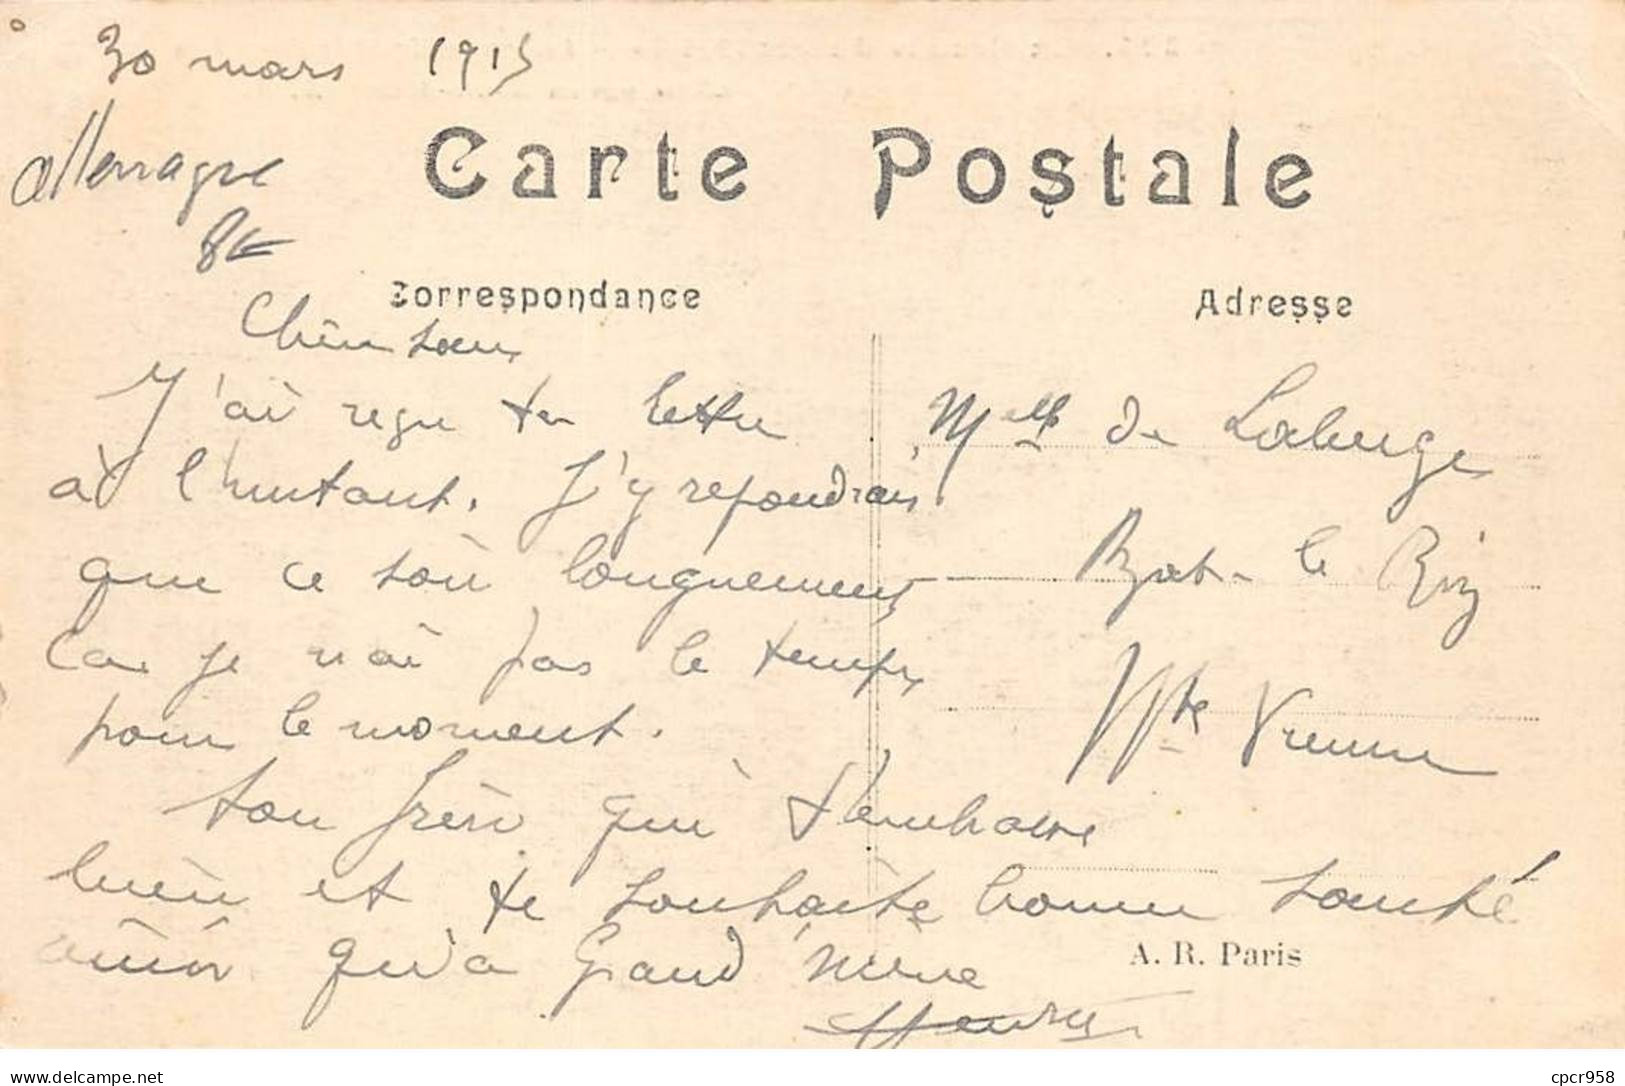 30 mars 1915
allemagne
Carte Postale
Correspondance
Adresse
Chère soeur
J'ai reçu ta lettre
à l'instant. J'y repondrais
que ce soir longuement
Car je n'ai pas le temps
pour le moment.
ton frère qui t'embrasse
bien et te souhaite bonne santé
ainsi qu'a Grand'mère
Henri
Melle de Laberge
le
Hte Vienne
A. R. Paris
cpcr958